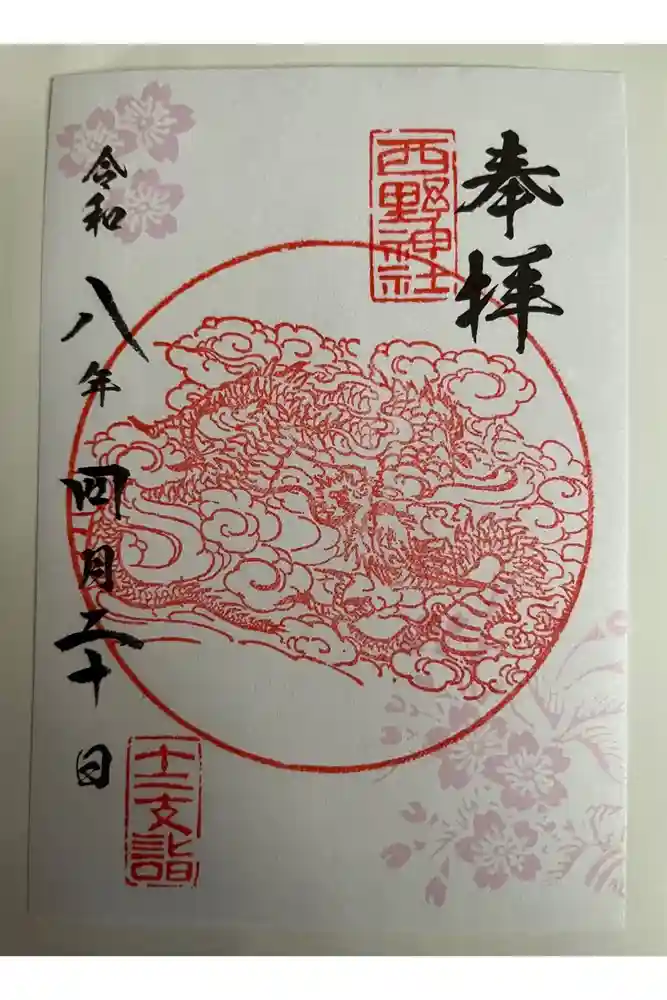 奉拝
西野神社
令和八年四月二十日
十二支詣